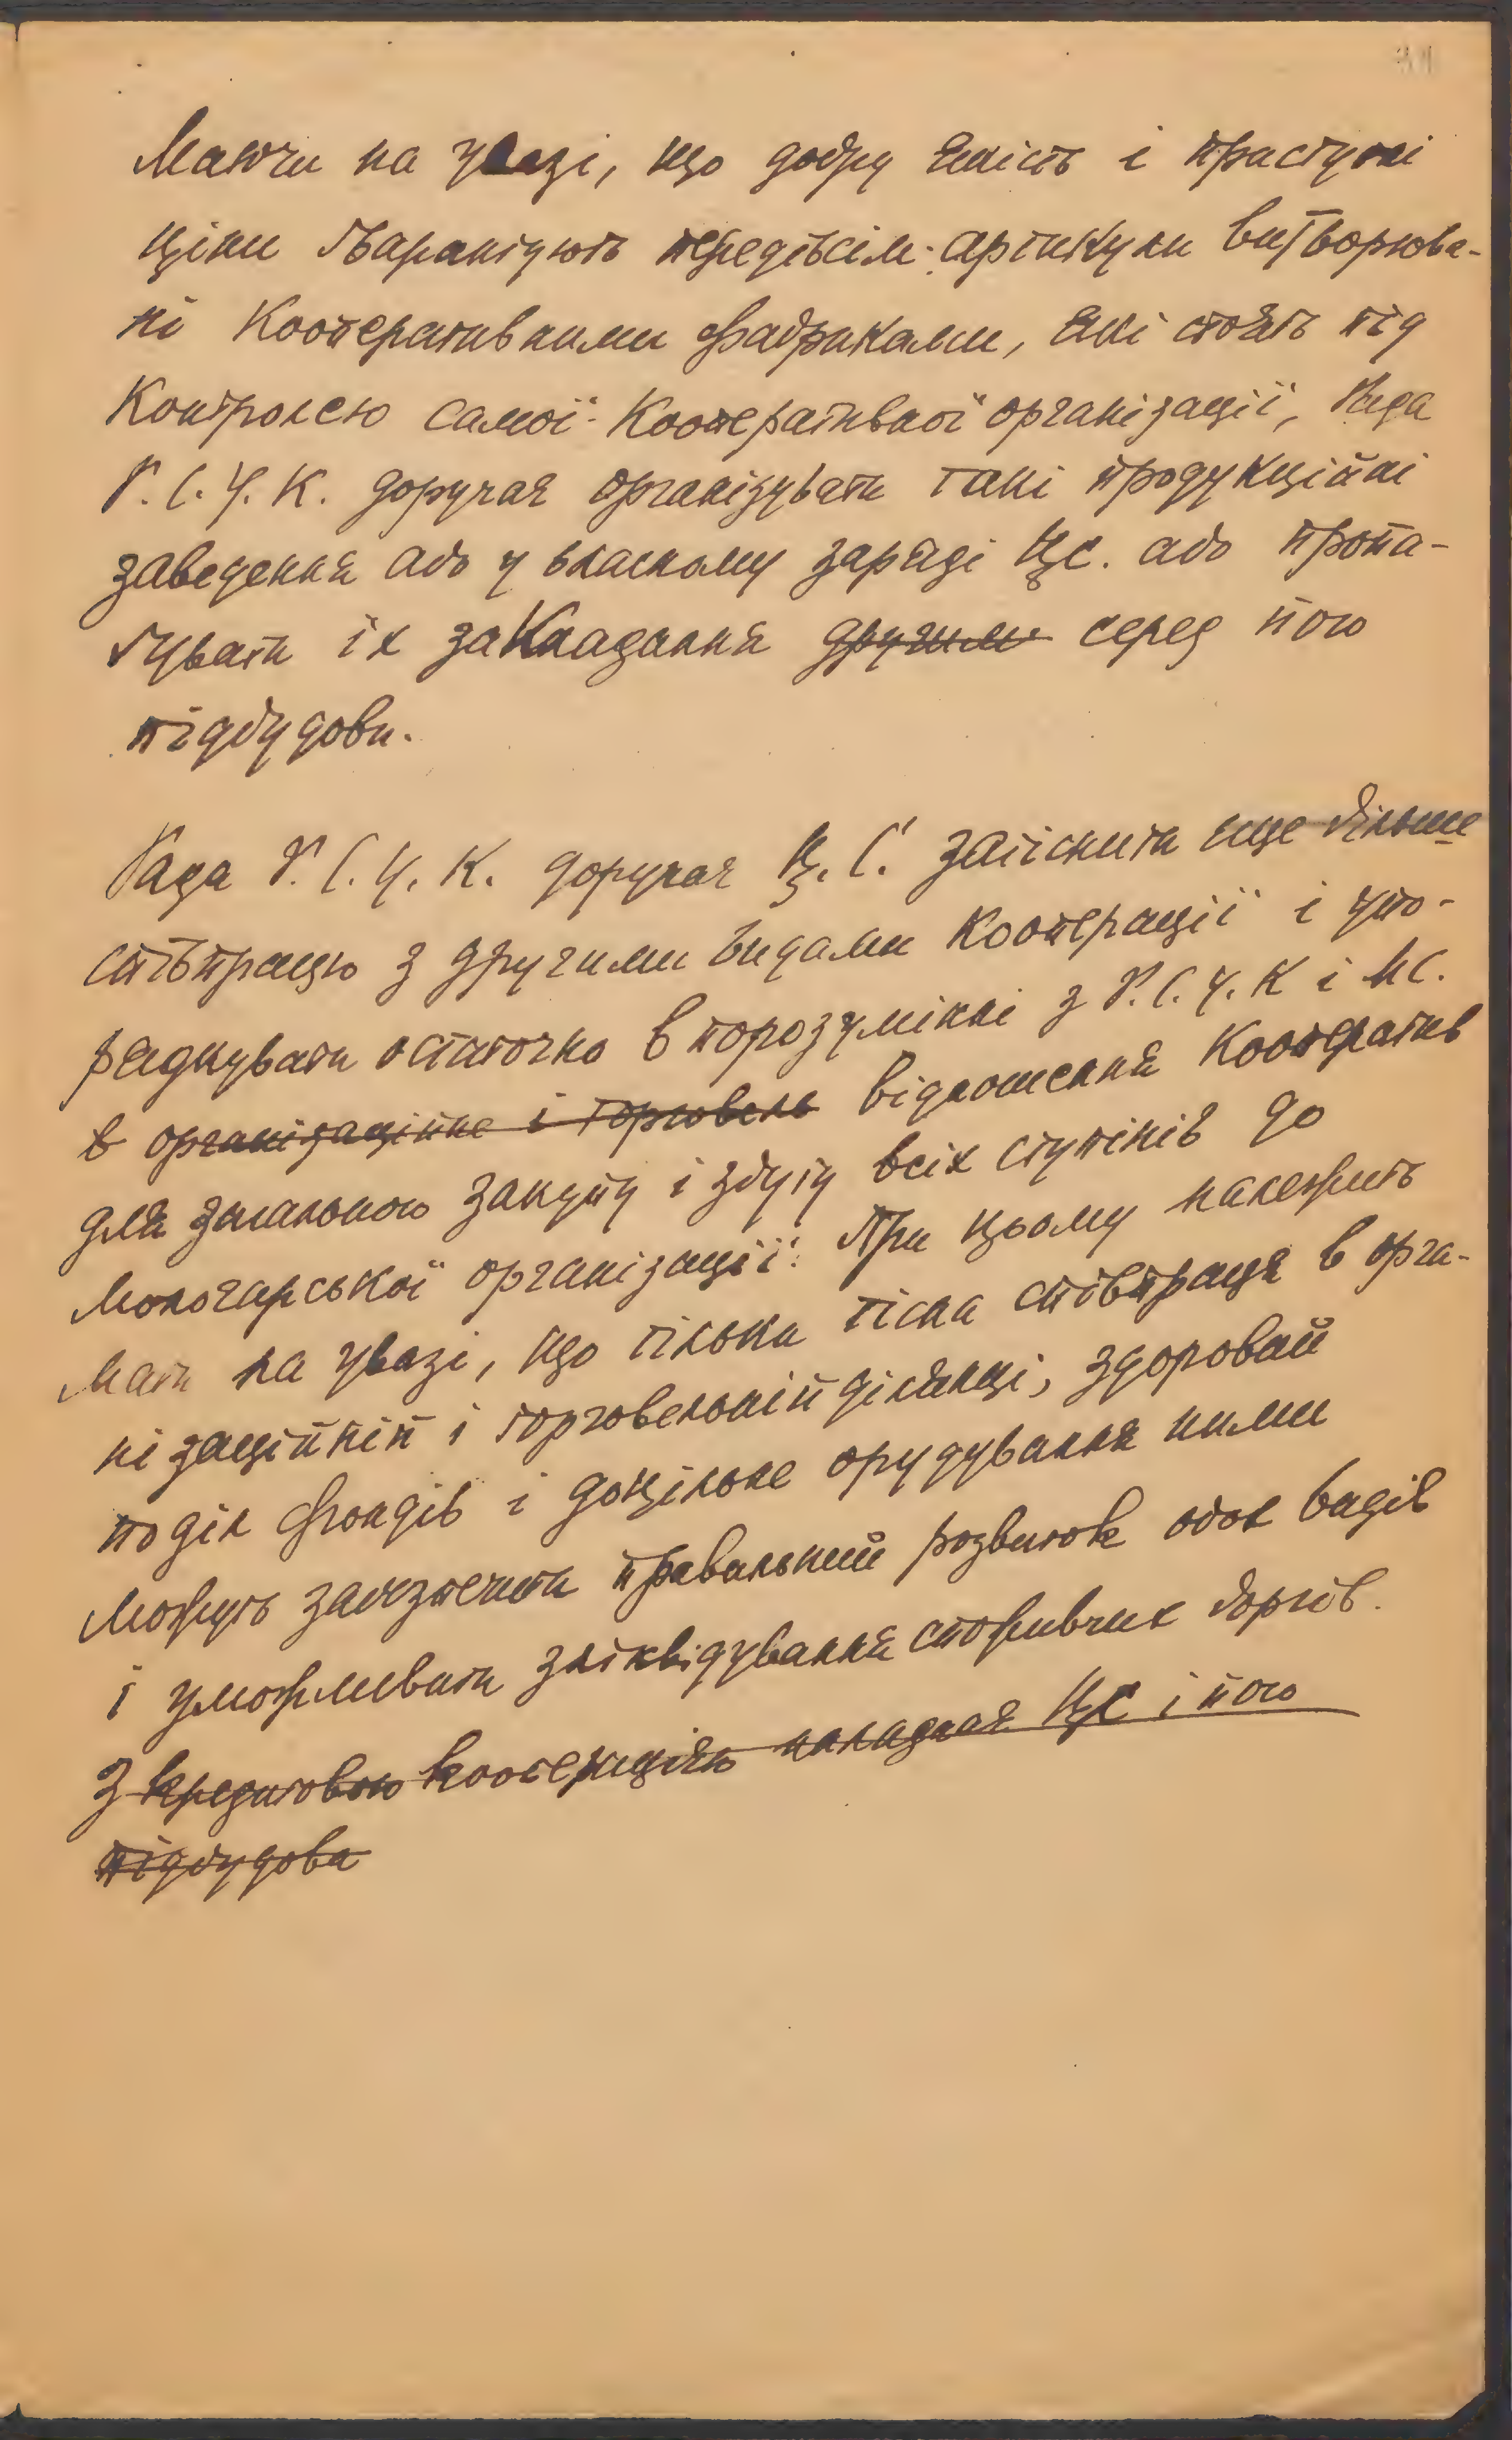 Маючи на увазі, що добру якість і приступні
ціни ґварантують передівсім артикули витворюва-
ні кооперативними фабриками, які стоять під
контролею самої кооперативної організації, Рада
Р.С.У.К. доручає організувати такі продукційні
заведення або у власному заряді ЦС. або пропа-
ґувати їх закладання другим серед його
підбудови.
Рада Р.С.У.К. доручає Ц.С. затіснити ще більше
співпрацю з другими видами кооперації і упо-
рядкувати остаточно в порозумінні з Р.С.У.К і МС.
в організаційне і торговельн відношення кооператив
для загального закупу і збуту всіх ступінів до
молочарської організації. При цьому належить
мати на увазі, що тільки тісна співпраця в орга-
нізаційній і торговельній ділянці, здоровий
поділ фондів і доцільне орудування ними
можуть забезпечити правильний розвиток обох видів
і уможливити зліквідування споживчих боргів.
З кредитовою кооперацією наладнає ЦС і його
підбудова